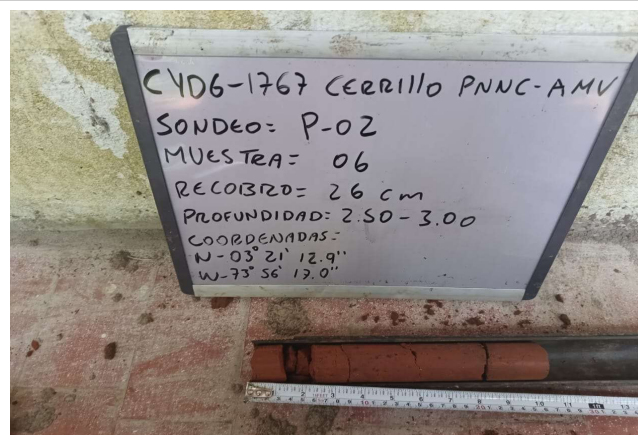 CYDG-1767 CERRIllO PNNC-AMV
SONDEO= P-02
MUESTRA= 06
RECOBRO= 26 cm
PROFUNDIDAD= 2.50-3.00
COORDENADAS=
N-03° 21' 12.9"
W-73° 56' 17.0"